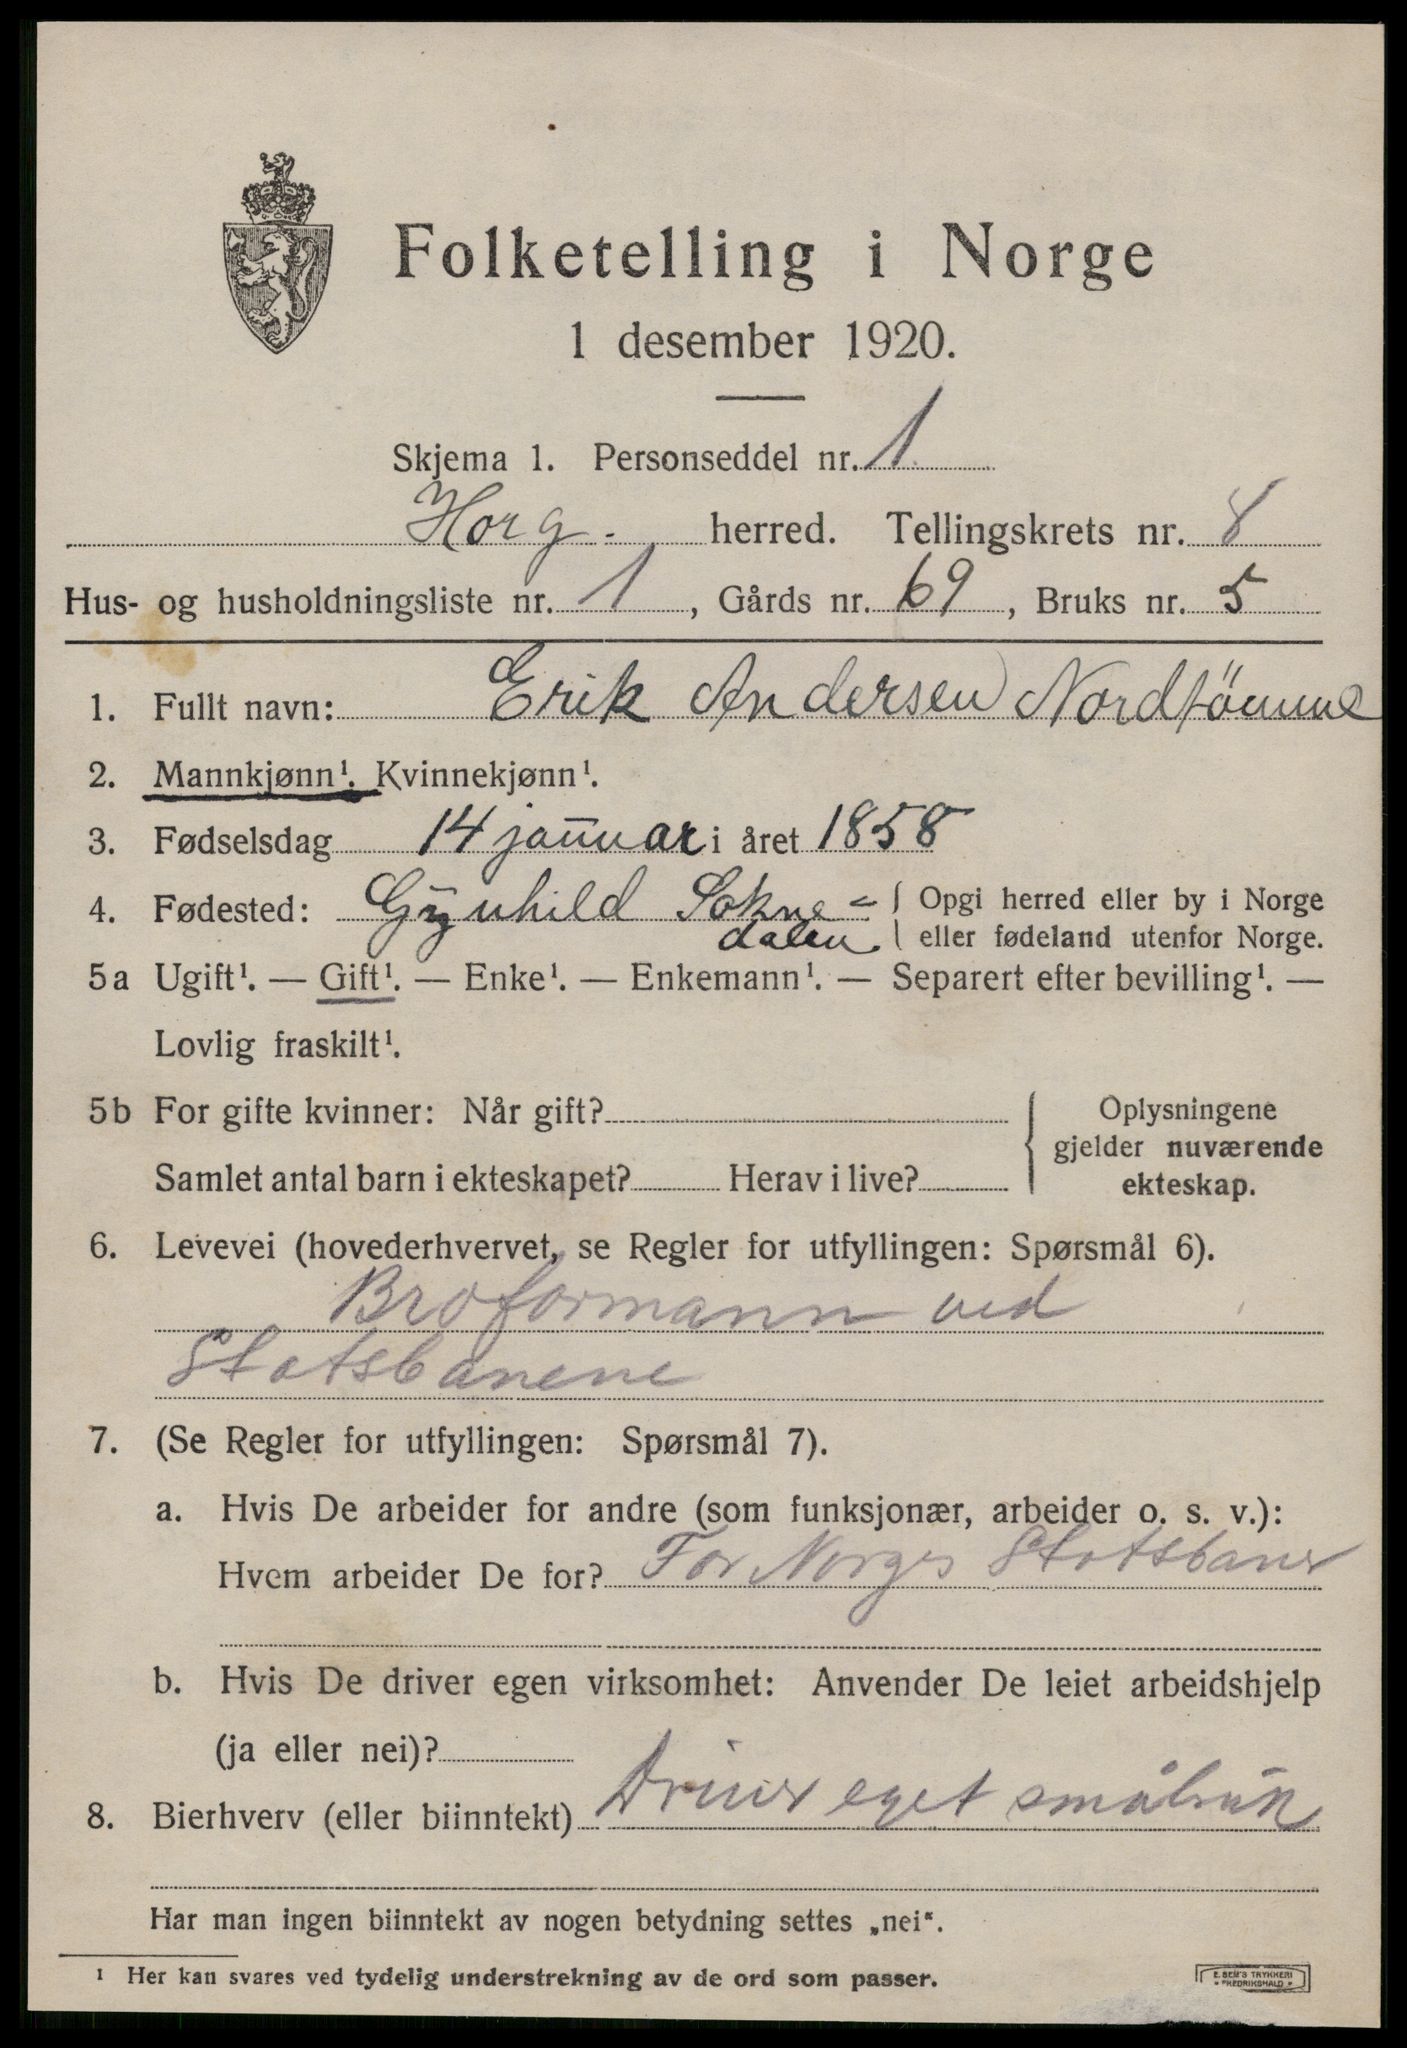 Folketelling i Norge
1 desember 1920.
Skjema 1. Personseddel nr. 1
Horg. herred. Tellingskrets nr. 8
Hus- og husholdningsliste nr. 1, Gårds nr. 69, Bruks nr. 5
1. Fullt navn: Erik Andersen Nordtömme
2. Mannkjønn¹. Kvinnekjønn¹.
3. Fødselsdag 14 januar i året 1858
4. Fødested: Sokne- { Opgi herred eller by i Norge
dalen. { eller fødeland utenfor Norge.
5a Ugift¹. — Gift¹. — Enke¹. — Enkemann¹. — Separert efter bevilling¹. —
Lovlig fraskilt¹.
5b For gifte kvinner: Når gift? { Oplysningene
gjelder nuværende
Samlet antal barn i ekteskapet? Herav i live? ekteskap.
6. Levevei (hovederhvervet, se Regler for utfyllingen: Spørsmål 6).
Broformann ved
Statsbanene
7. (Se Regler for utfyllingen: Spørsmål 7).
a. Hvis De arbeider for andre (som funksjonær, arbeider o. s. v.):
Hvem arbeider De for? For Norges Statsbaner
b. Hvis De driver egen virksomhet: Anvender De leiet arbeidshjelp
(ja eller nei)?
8. Bierhverv (eller biinntekt) Driver eget småbruk
Har man ingen biinntekt av nogen betydning settes „nei“.
¹ Her kan svares ved tydelig understrekning av de ord som passer.
E. SEM'S TRYKKERI
FREDRIKSHALD